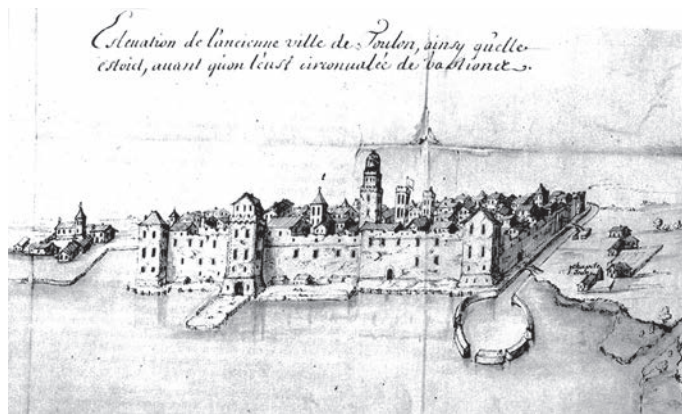 Esleuation de l'ancienne ville de Toulon, ainsy qu'elle
estoict, auant qu'on l'eust circonualée de bastions.